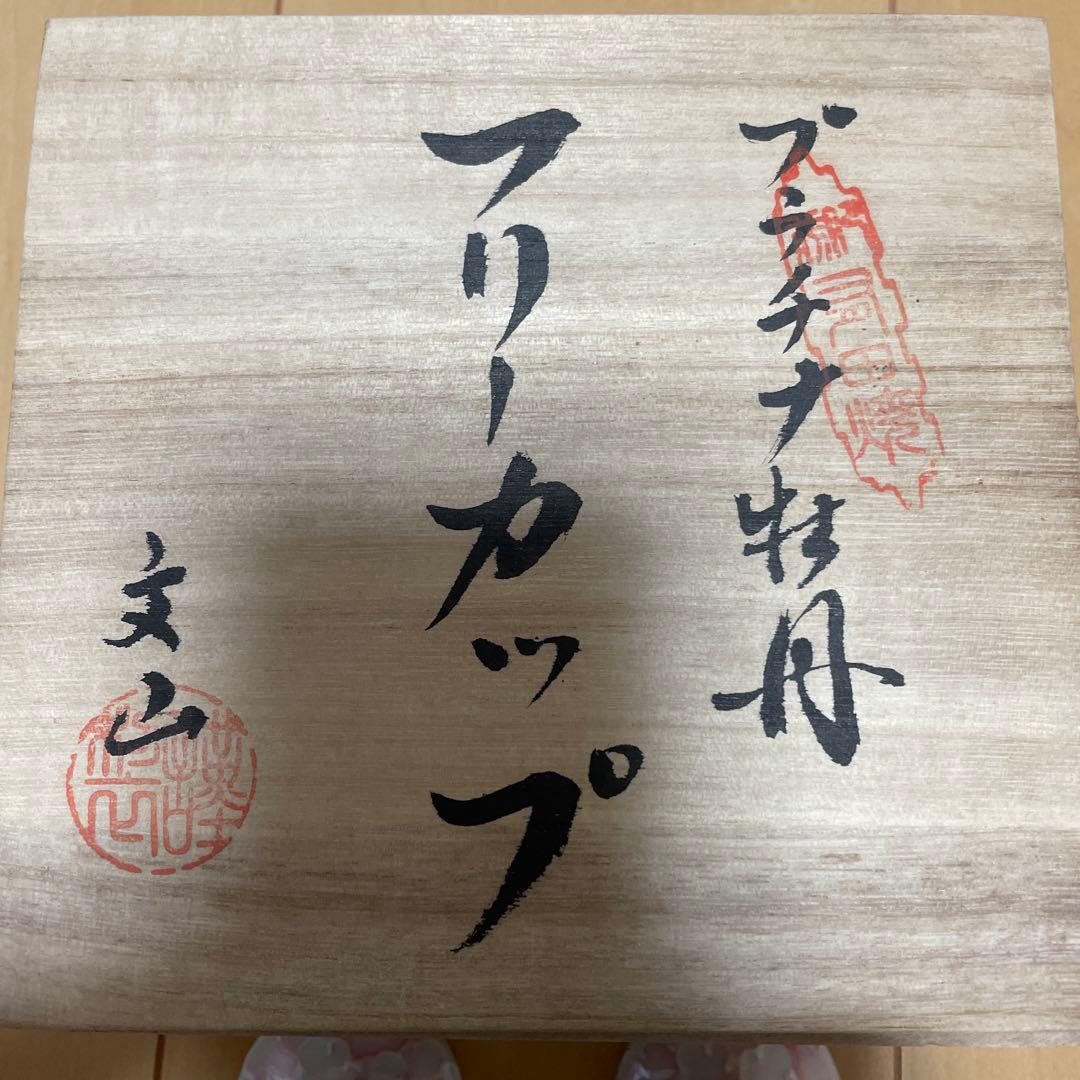 プラチナ牡丹
有田焼
フリーカップ
文山